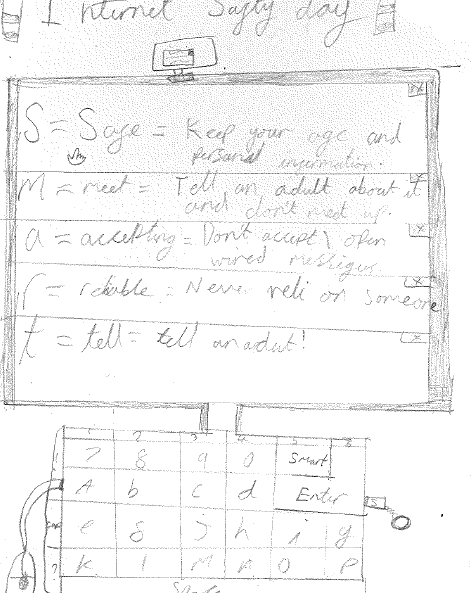 Internet Safty day
S = Safe = Keep your age and
personal information.
M = meet = Tell an adult about it
and don't meet up.
a = accepting = Don't accept \ open
wired messiges
r = reliable = Never reli on someone
t = tell = tell an adult!
1 2 3 4 5 6
7 8 9 0 Smart
A b c d Enter
e f j h i g
K l M n O P